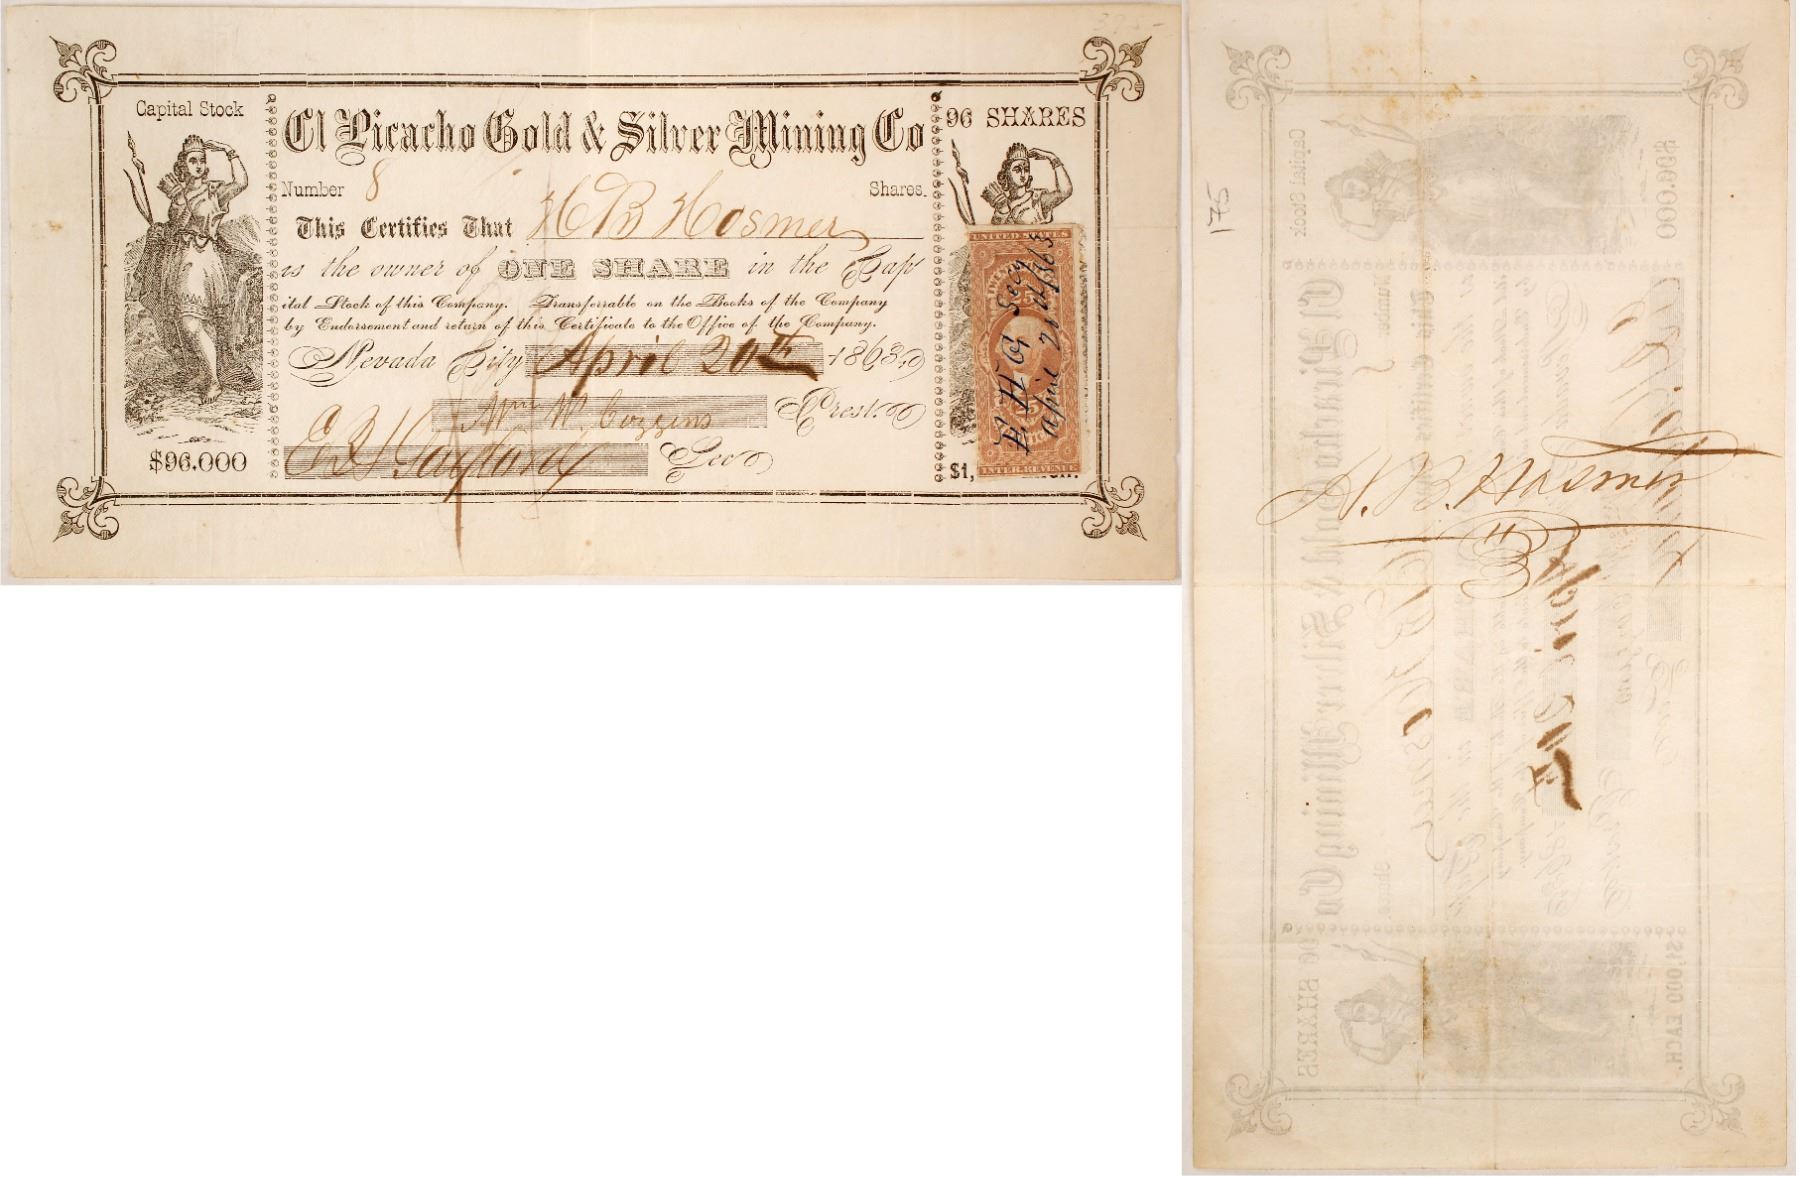 Capital Stock
El Picacho Gold & Silver Mining Co
96 SHARES
Number 8 Shares.
This Certifies That H B Hosmer
is the owner of ONE SHARE in the Cap
ital Stock of this Company. Transferrable on the Books of the Company
by Endorsement and return of this Certificate to the Office of the Company.
Nevada City April 20th 1863
Wm W Cozzens Prest.
E B Gaylord Sec
$96.000
UNITED STATES
Secy
April 21st/1863
INTER. REVENUE
$1,
175
H. B. Hosmer